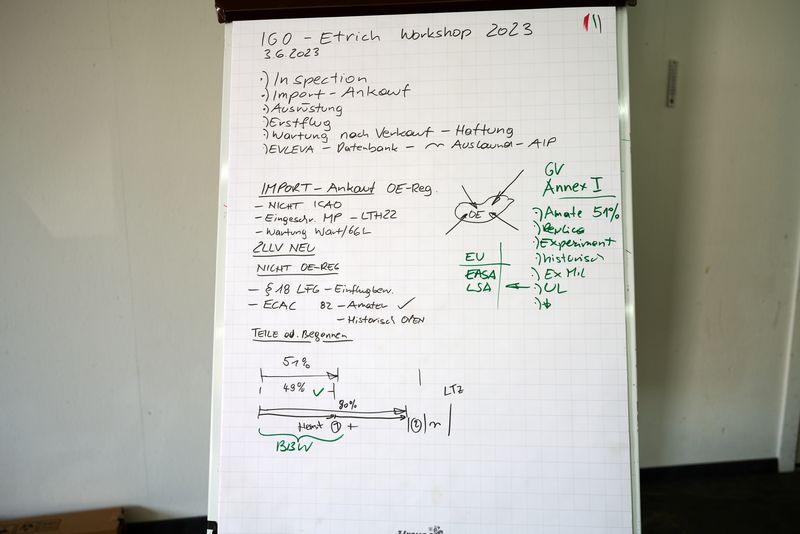 IGO - Etrich Workshop 2023
3.6.2023
·) Inspection
·) Import - Ankauf
·) Ausrüstung
·) Erstflug
·) Wartung nach Verkauf - Haftung
·) EVLEVA - Datenbank - Ausland - AIP
IMPORT - Ankauf OE-Reg.
- NICHT ICAO
- Eingeschr. MP - LTH22
- Wartung Wart/GGL
ZLLV NEU
NICHT OE-REG
- § 18 LFG - Einflugbew.
- ECAC 82 - Amateur ✓
- Historisch OPEN
TEILE od. Begonnen
51%
49% ✓
80%
LTZ
① +
②
BBW
OE
EU
EASA
LSA
GV
Annex I
·) Amate 51%
·) Replica
·) Experiment
·) historisch
·) Ex Mil
·) UL